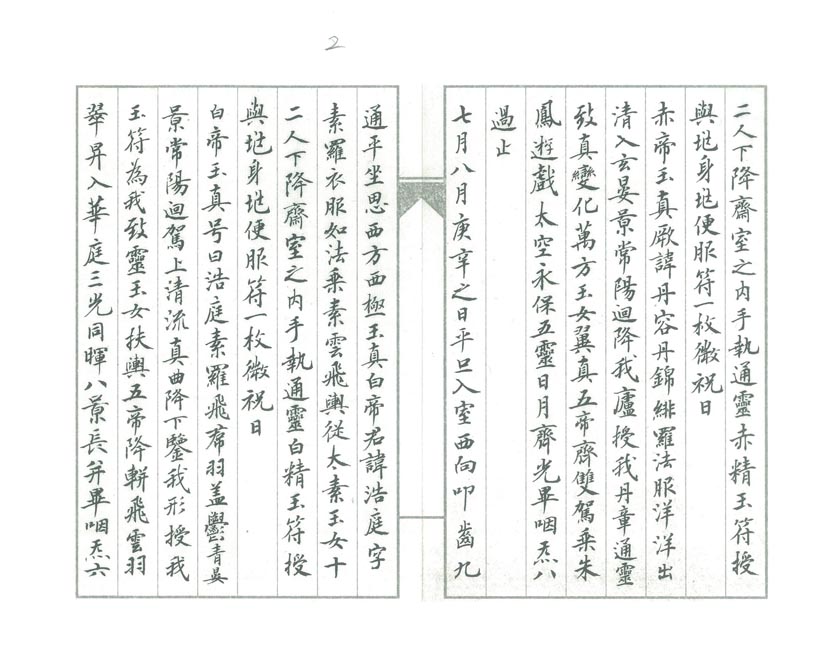 2
二人下降齋室之内手執通靈赤精玉符授
與兆身兆便服符一枚微祝曰
赤帝玉真厥諱丹容丹錦緋羅法服洋洋出
清入玄晏景常陽迴降我廬授我丹章通靈
致真變化萬方玉女翼真五帝齊雙駕乘朱
鳳遊戲太空永保五靈日月齊光畢咽炁八
過止
七月八月庚辛之日平旦入室西向叩齒九
通平坐思西方西極玉真白帝君諱浩庭字
素羅衣服如法乘素雲飛輿從太素玉女十
二人下降齋室之内手執通靈白精玉符授
與兆身兆便服符一枚微祝曰
白帝玉真号曰浩庭素羅飛帬羽盖鬱青晏
景常陽迴駕上清流真曲降下鑒我形授我
玉符為我致靈玉女扶輿五帝降軿飛雲羽
翠昇入華庭三光同暉八景長并畢咽炁六